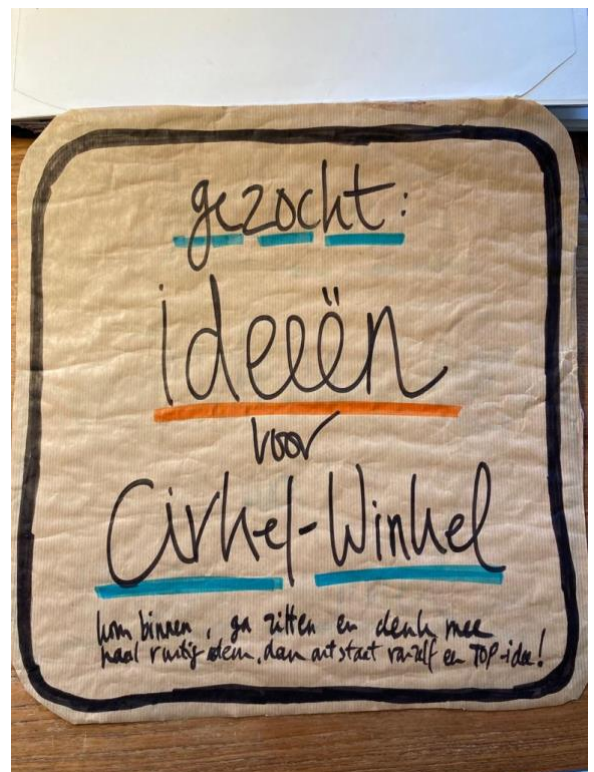 gezocht:
ideeën
voor
Cirkel-Winkel
kom binnen, ga zitten en denk mee
haal rustig adem, dan ontstaat vanzelf een TOP-idee!